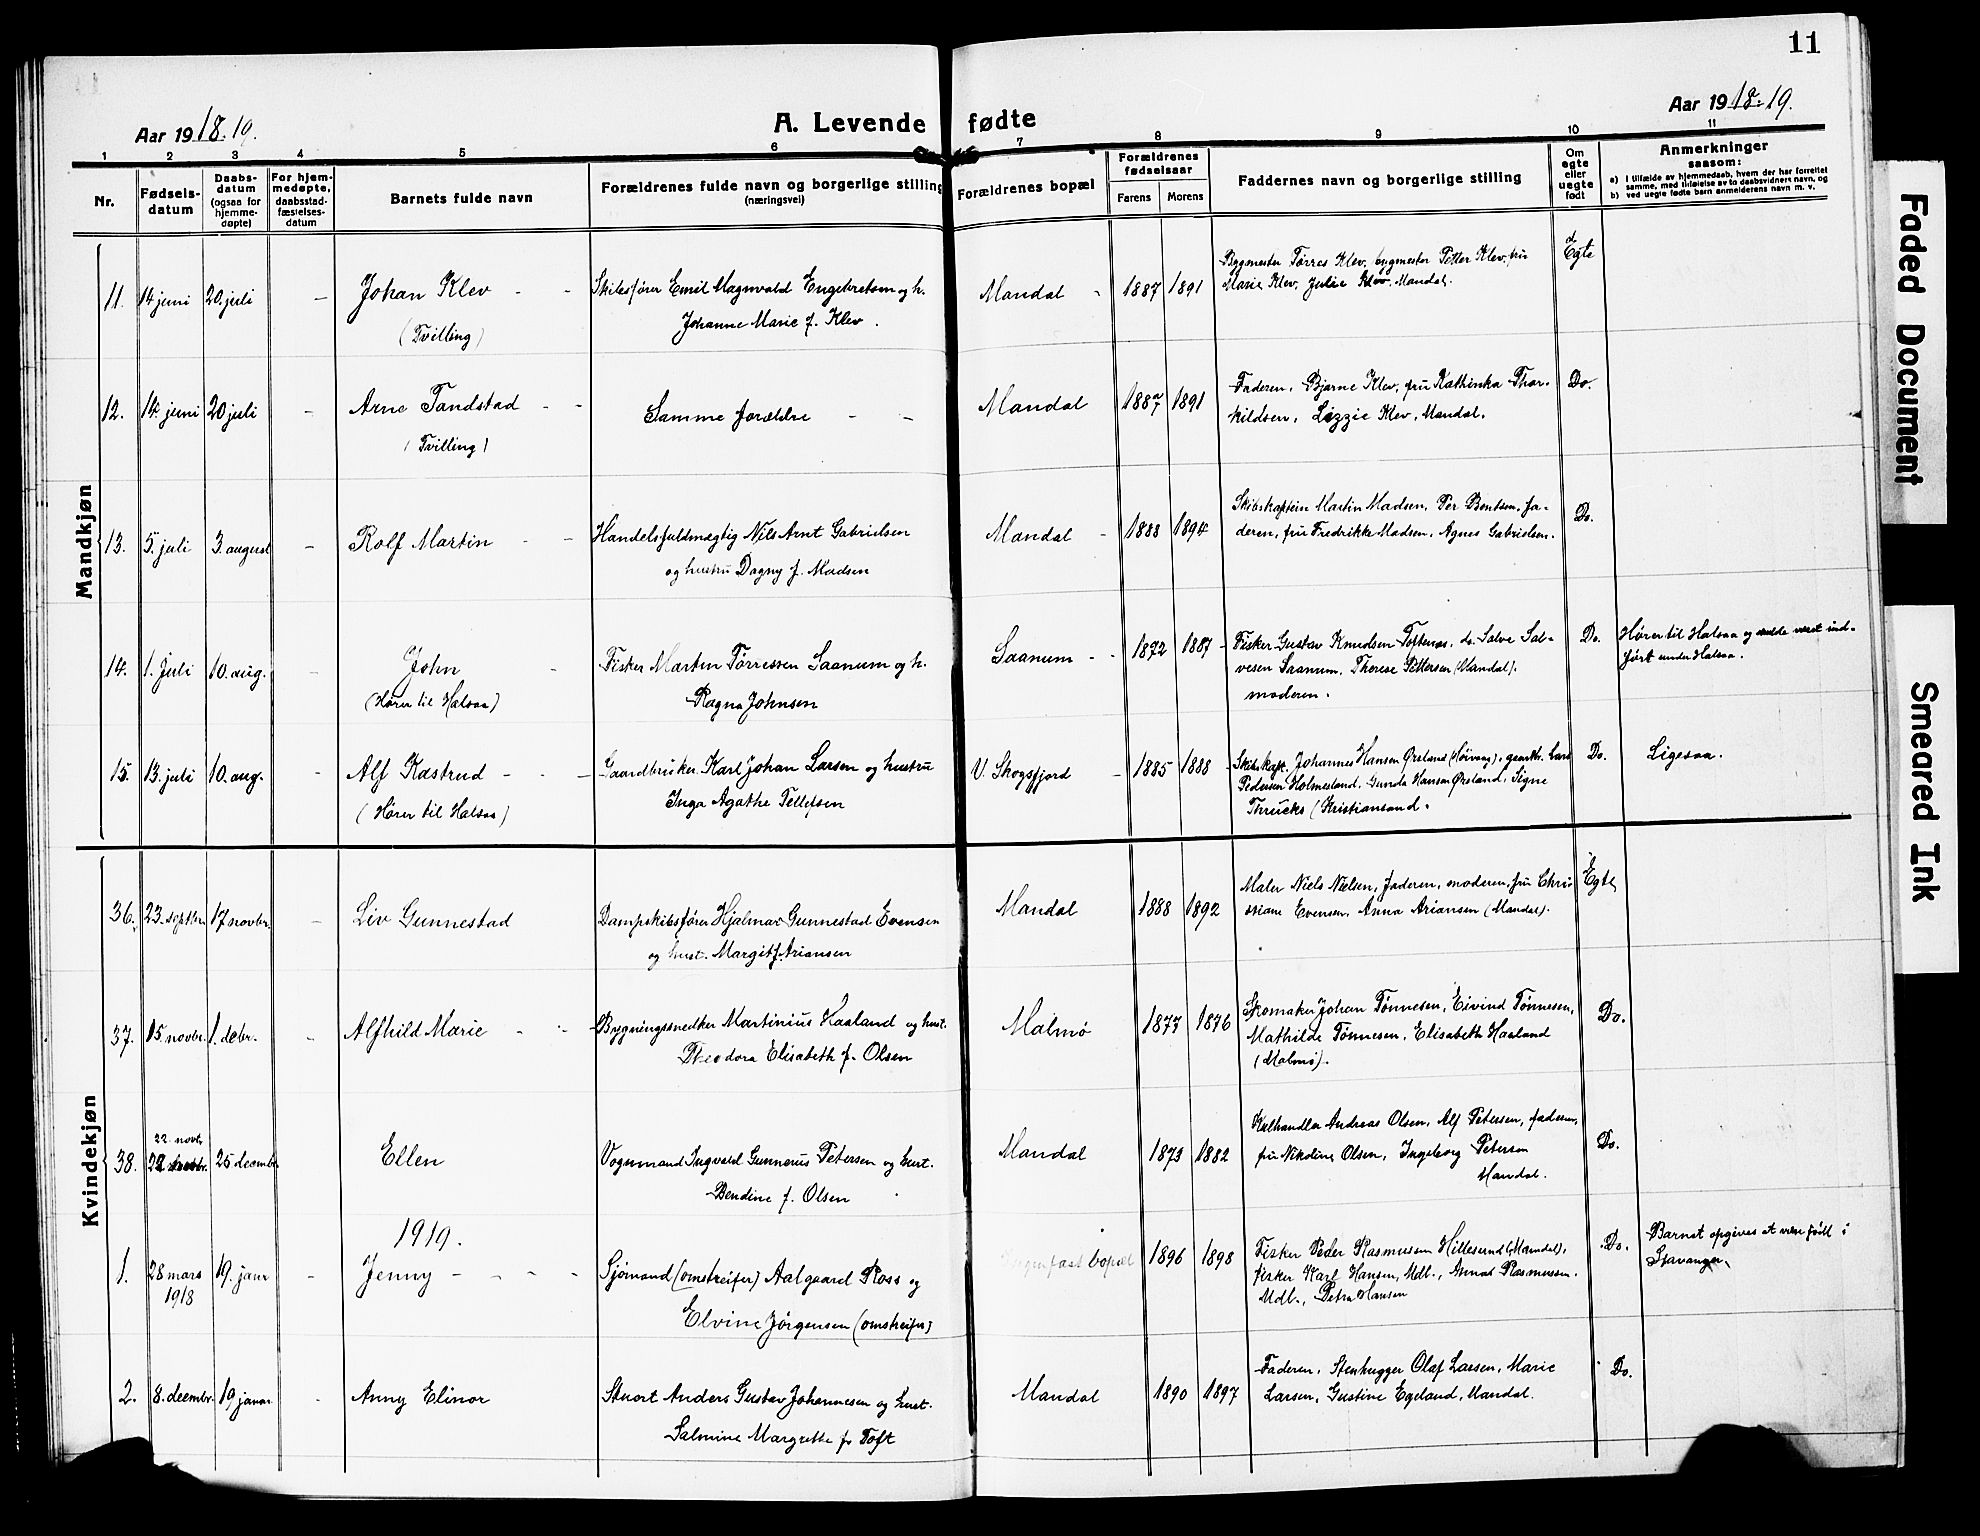 11
Aar 1918-19.
A. Levende fødte
Aar 1918-19.
1 2 3 4 5 6 7 8 9 10 11
Nr.
Fødselsdatum
Daabsdatum (ogsaa for hjemmedøpte)
For hjemmedøpte, daabsstadfæstelsesdatum
Barnets fulde navn
Forældrenes fulde navn og borgerlige stilling (næringsvei)
Forældrenes bopæl
Forældrenes fødselsaar
Farens Morens
Faddernes navn og borgerlige stilling
Om egte eller uegte født
Anmerkninger
saasom:
a) I tilfælde av hjemmedaab, hvem der har forrettet samme, med tilføielse av to daabsvidners navn, og
b) ved uegte fødte barn anmelderens navn m. v.
Mandkjøn
11. 14 juni 20. juli – Johan Klev - -
(Tvilling)
Skibsfører Emil Magnvald Engebretsen og h.
Johanne Marie f. Klev.
Mandal - 1887 1891
Bygmester Tørres Klev, bygmester Petter Klev, fru
Marie Klev, Julie Klev, Mandal.
Egte
12. 14. juni 20 juli - Arne Tandstad - -
(Tvilling)
Samme forældre - -
Mandal 1887 1891
Faderen, Bjarne Klev, fru Kathinka Thor-
kildsen, Lizzie Klev, Mandal.
Do.
13. 5. juli 3. august - Rolf Martin - -
Handelsfuldmægtig Nils Arnt Gabrielsen
og hustru Dagny f. Madsen
Mandal - 1888 1894
Skibskaptein Martin Madsen, Per Bentsen, fa-
deren, fru Fredrikke Madsen, Agnes Gabrielsen.
Do.
14. 1. Juli 10. aug. - John -
(Hører til Halsaa)
Fisker Martin Tørressen Saanum og h.
Ragna Johnsen
Saanum - - 1872 1887
Fisker Gustav Knudsen Toftenes, do. Salve Sal-
vesen Saanum, Therese Pettersen (Mandal).
moderen.
Do.
Hører til Halsaa og skulde været ind-
ført under Halsaa.
15. 13. juli 10. aug. - Alf Kastrud - - -
(Hører til Halsaa)
Gaardbruker Karl Johan Larsen og hustru
Inga Agathe Tellefsen
V. Skogsfjord - 1885 1888
Skibskapt. Johannes Hansen Øreland (Høivaag), gaardbr. Lars
Pedersen Holmesland, Gunda Hansen Øreland, Signe
Thrucks (Kristiansand.
Do.
Ligesaa.
Kvindekjøn
36. 23. septbr. 17 novbr. - Liv Gunnestad
Dampskibsfører Hjalmar Gunnestad Evensen
og hust. Margit f. Ariansen
Mandal 1888 1892
Maler Niels Nielsen, faderen, moderen, fru Chris
tiane Evensen, Anna Ariansen (Mandal).
Egte
37. 15 novbr. 1. debr. - Alfhild Marie - -
Bygningssnedker Martinius Haaland og hust.
Theodora Elisabeth f. Olsen
Malmø 1877 1876
Skomaker Johan Tønnesen, Eivind Tønnesen,
Mathilde Tønnesen, Elisabeth Haaland
(Malmø).
Do.
22. novbr.
38. 25 decembr. Ellen
Vognmand Ingvald Gunnerius Petersen og hust.
Bendine f. Olsen
Mandal 1873 1882
Kulhandler Andreas Olsen, Alf Petersen, faderen,
fru Nikoline Olsen, Ingeborg Petersen
Mandal.
Do.
1919.
1. 28 mars 1918 19. janr - Jenny - - - -
Sjømand (omstreifer) Aalgaard Ross og
Elvine Jørgensen (omstreifer)
Ingen fast bopæl 1896 1898
Fisker Peder Rasmussen Hillesund (Mandal),
fisker Karl Hansen, Mdl., Anna Rasmussen.
Mdl., Petra Hansen
Do.
Barnet opgives at være født i
Stavanger.
2. 8. decembr. 19 januar - Anny Elinor
Stuert Anders Gustav Johannesen og hust.
Salmine Margrethe f. Toft
Mandal 1890 1897
Faderen, Stenhugger Olaf Larsen, Marie
Larsen, Gustine Egeland, Mandal.
Do.
Faded Document
Smeared Ink